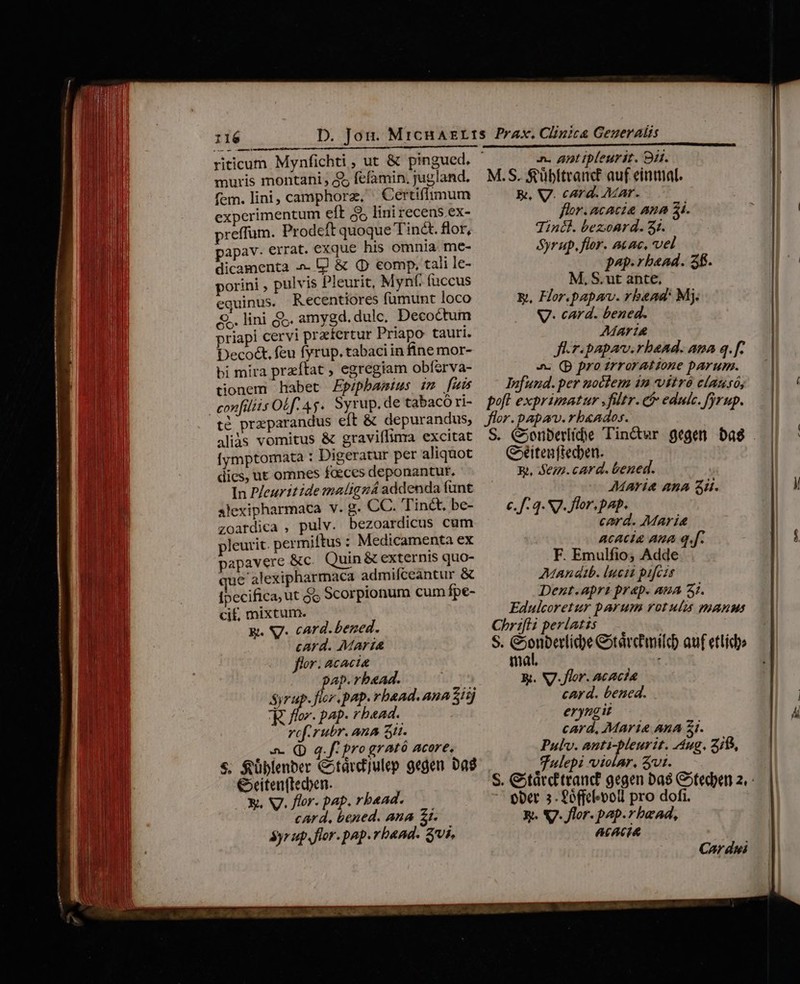 116 D. Joh. Michaelis Prax. Clinica Generalis
riticum Mynſichti, ut & pingued.
muris montani, ꝏ ſeſamin. jugland.
ſem. lini, camphoræ. Certiſſimum
experimentum eſt ꝏ lini recens ex-
preſſum. Prodeſt quoque Tinct. flor,
papav. errat. exque his omnia me-
dicamenta & comp, tali le-
porini, pulvis Pleurit, Mynſ. ſuccus
equinus. Recentiores ſumunt loco
lini ꝏ. amygd. dulc. Decoctum
priapi cervi præfertur Priapo tauri.
Decoct. ſeu ſyrup. tabaci in fine mor-
bi mira præſtat, egregiam obſerva-
tionem habet Epiphanius in ſuis
conſiliis Obſ. 45. Syrup. de tabaco ri-
tè præparandus eſt & depurandus,
aliàs vomitus & graviſſima excitat
ſymptomata: Digeratur per aliquot
dies, ut omnes fœces deponantur.
In Pleuritide malignâ addenda ſunt
alexipharmaca v. g. CC. Tinct. be-
zoardica, pulv. bezoardicus cum
pleurit. permiſtus: Medicamenta ex
papavere &c. Quin & externis quo-
que alexipharmaca admiſceantur &
ſpecifica, ut ꝏ Scorpionum cum ſpe-
cif, mixtum.
℞. ▽. card. bened.
card. Mariæ
flor. acaciæ
pap. rhæad.
Syrup. flor. pap. rhæad. ana ℥iij
flor. pap. rhæad.
roſ. rubr. ana ʒii.
q. ſ. pro gratô acore.
S. Kühlender Stärckjulep gegen das
Seitenſtechen.
℞. ▽. flor. pap. rhæad.
card. bened. ana ℥i.
Syrup. flor. pap. rhæad. ʒvi.
antipleurit. ℈ii.
M. S. Kühltranck auf einmal.
℞. ▽. card. Mar.
flor. acaciæ ana ℥i.
Tinct. bezoard. ʒi.
Syrup. flor. acac. vel
pap. rhæad. ℥ß.
M. S. ut ante.
℞. Flor. papav. rhæad. Mj.
▽. card. bened.
Mariæ
fl. r. papav. rhæad. ana q. ſ.
pro irroratione parum.
Infund. per noctem in vitrô clausô,
poſt exprimatur, filtr. & edulc. ſyrup.
flor. papav. rhæados.
S. Sonderliche Tinctur gegen das
Seitenſtechen.
℞. Sem. card. bened.
Mariæ ana ʒii.
c. ſ. q. ▽. flor. pap.
card. Mariæ
acaciæ ana q. ſ.
F. Emulſio; Adde
Mandib. lucii piſcis
Dent. apri præp. ana ʒi.
Edulcoretur parum rotulis manus
Chriſti perlatis
S. Sonderliche Stärckmilch auf etlich-
mal.
℞. ▽. flor. acaciæ
card. bened.
eryngii
card. Mariæ ana ℥i.
Pulv. anti-pleurit. Aug. ʒiß,
Julepi violar. ʒvi.
S. Stärcktranck gegen das Stechen 2.
oder 3. Löffel-voll pro doſi.
℞. ▽. flor. pap. rhæad,
acaciæ
Cardui